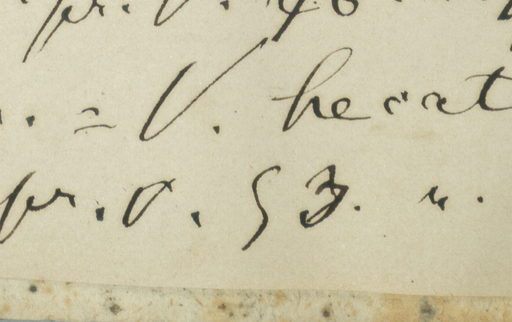 pr. V. 46
. = V. hecat
pr. V. 53. n.